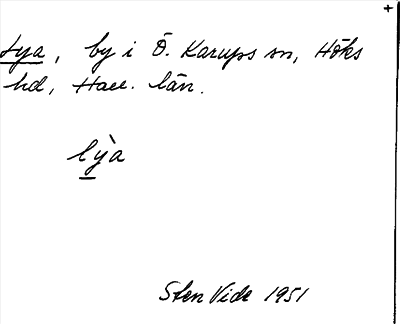 Lya, by i Ö. Karups sn, Höks
hd, Hall. län.
lỳa
Sten Vide 1951